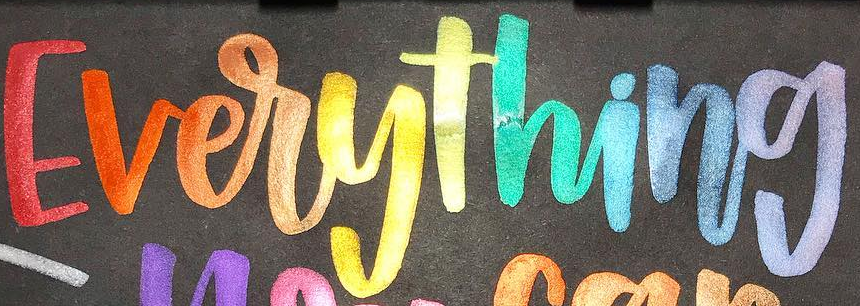 Everything
you can